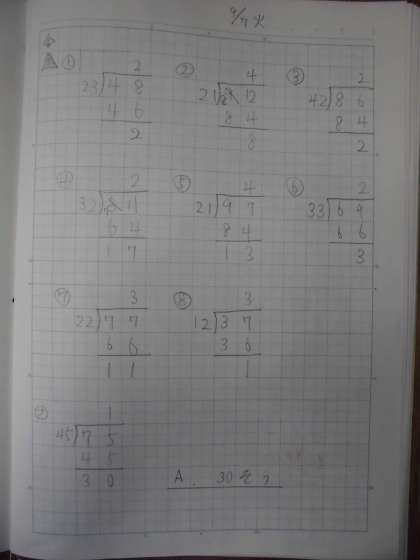 9/7 火
① 2
23)48
46
2
② 4
21) 12
84
8
③ 2
42)86
84
2
④ 2
32) 11
64
17
⑤ 4
21)97
84
13
⑥ 2
33)69
66
3
⑦ 3
22)77
66
11
⑧ 3
12)37
36
1
1
45)75
45
30
A. 30